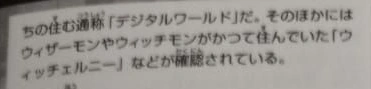 ちの住む通称「デジタルワールド」だ。そのほかには
ウィザーモンやウィッチモンがかつて住んでいた「ウ
ィッチェルニー」などが確認されている。